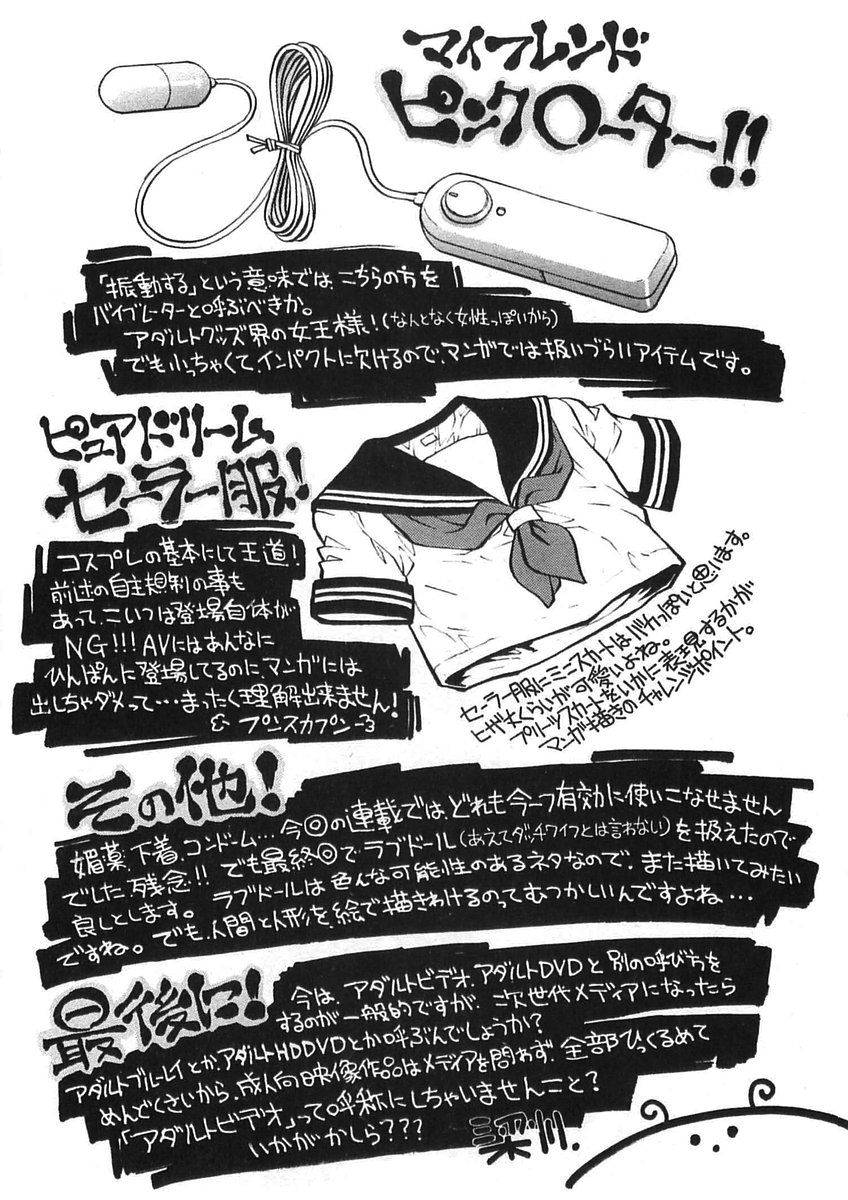 マイフレンド
ピンクローター!!
「振動する」という意味では、こちらの方を
バイブレーターと呼ぶべきか。
アダルトグッズ界の女王様!(なんとなく女性っぽいから)
でも小っちゃくて、インパクトに欠けるので、マンガでは扱いづらいアイテムです。
ピュアドリーム
セーラー服!
コスプレの基本にして王道!
前述の自主規制の事も
あって、こいつは登場自体が
NG!!! AVにはあんなに
ひんぱんに登場してるのに、マンガには
出しちゃダメって…まったく理解出来ません!
プンスカプン
セーラー服にミニスカートはバカっぽいと思います。
ヒザ丈くらいが可愛いよね。
プリーツスカートをいかに表現するかが
マンガ描きのチャレンジポイント。
その他!
媚薬、下着、コンドーム…今回の連載では、どれも今一つ有効に使いこなせません
でした残念!! でも最終回でラブドール(あえてダッチワイフとは言わない)を扱えたので
良しとします。 ラブドールは色んな可能性のあるネタなので、また描いてみたい
ですね。でも、人間と人形を、絵で描きわけるのってむつかしいんですよね…
最後に!
今は、アダルトビデオ、アダルトDVDと別の呼び方を
するのが一般的ですが、次世代メディアになったら
アダルトブルーレイとか、アダルトHDDVDとか呼ぶんでしょうか?
めんどくさいから、成人向映像作品はメディアを問わず、全部ひっくるめて
「アダルトビデオ」って呼称にしちゃいませんこと?
いかがかしら???